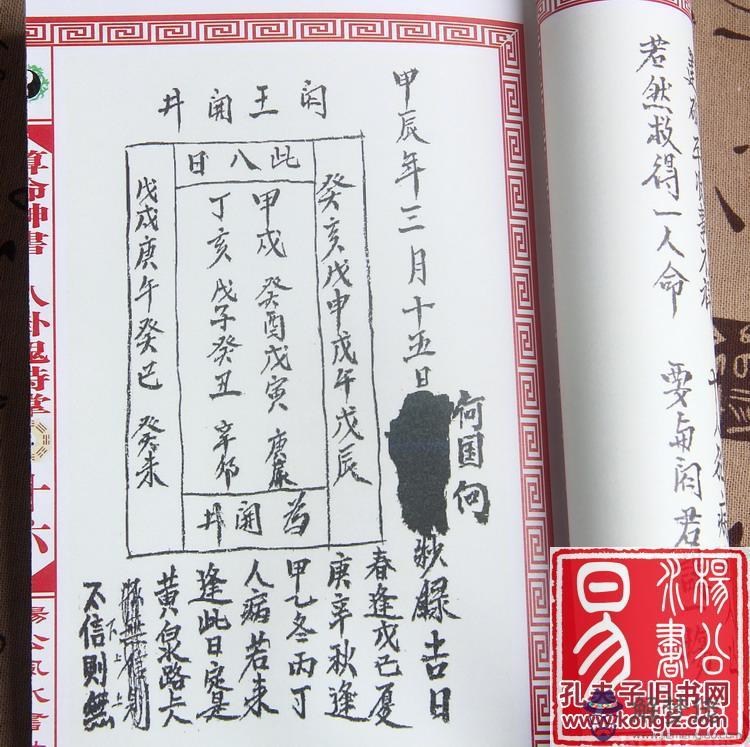 若然救得一人命 要与阎君
甲辰年三月十五日
何国何
抄録吉日
阎王開井
此八日
癸亥戊申戊午戊辰
甲戌 癸酉戊寅
丁亥 戊子癸丑 辛卯
戊戌庚午癸巳 癸未
為開井
春逢戊己夏
庚辛秋逢
甲乙冬丙丁
人病若来
逢此日定是
黄泉路上
不信則無
算命神書 八卦鬼詩掌 十六
易
孔夫子旧书网
www.kongfz.com